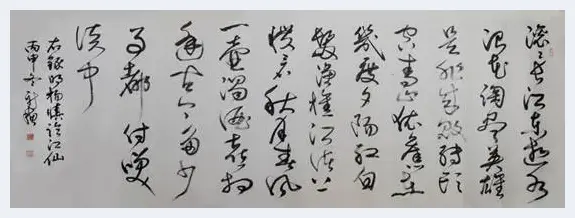 滚滚長江東逝水
浪花淘盡英雄
是非成敗轉頭
空青山依舊在
幾度夕陽紅白
髮漁樵江渚上
慣看秋月春風
一壺濁酒喜相
逢古今多少
事都付笑
談中
右錄明楊慎臨江仙
丙申冬